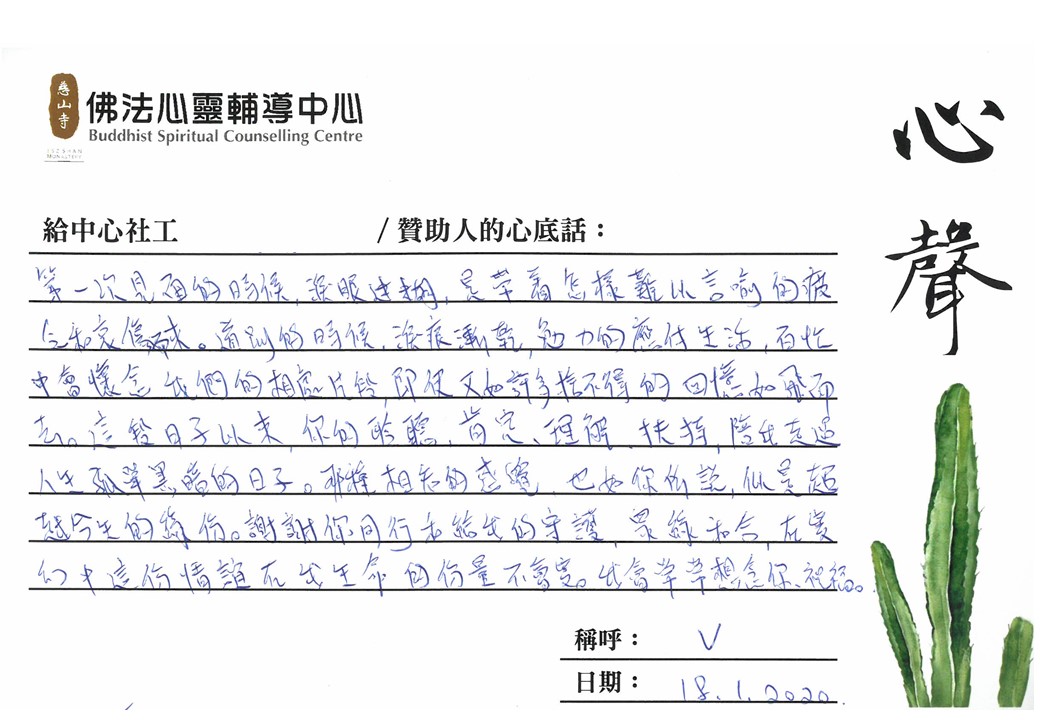 慈山寺
TSZ SHAN
MONASTERY
佛法心靈輔導中心
Buddhist Spiritual Counselling Centre
心聲
給中心社工 / 贊助人的心底話：
第一次見面的時候，淚眼迷糊，是帶着怎樣難以言喻的疲
乏和哀傷而來。道別的時候，淚痕漸乾，勉力的應付生活，百忙
中會懷念我們的相處片段，即使又如許多捨不得的回憶如飛而
去。這段日子以來，你的聆聽、肯定、理解、扶持，陪我走過
人生孤單黑暗的日子。那種相知的感覺，也如你所說，似是超
越今生的緣份。謝謝你同行和給我的守護，眾緣和合，在變
幻中這份情誼在我生命的份量不會變。我會常常想念你、祝福。
稱呼： V
日期： 18.1.2020.